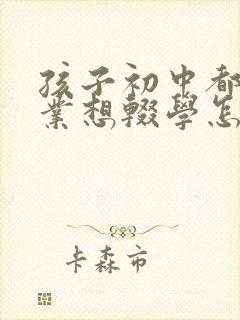 孩子初中都
業想輟學怎
卡森市